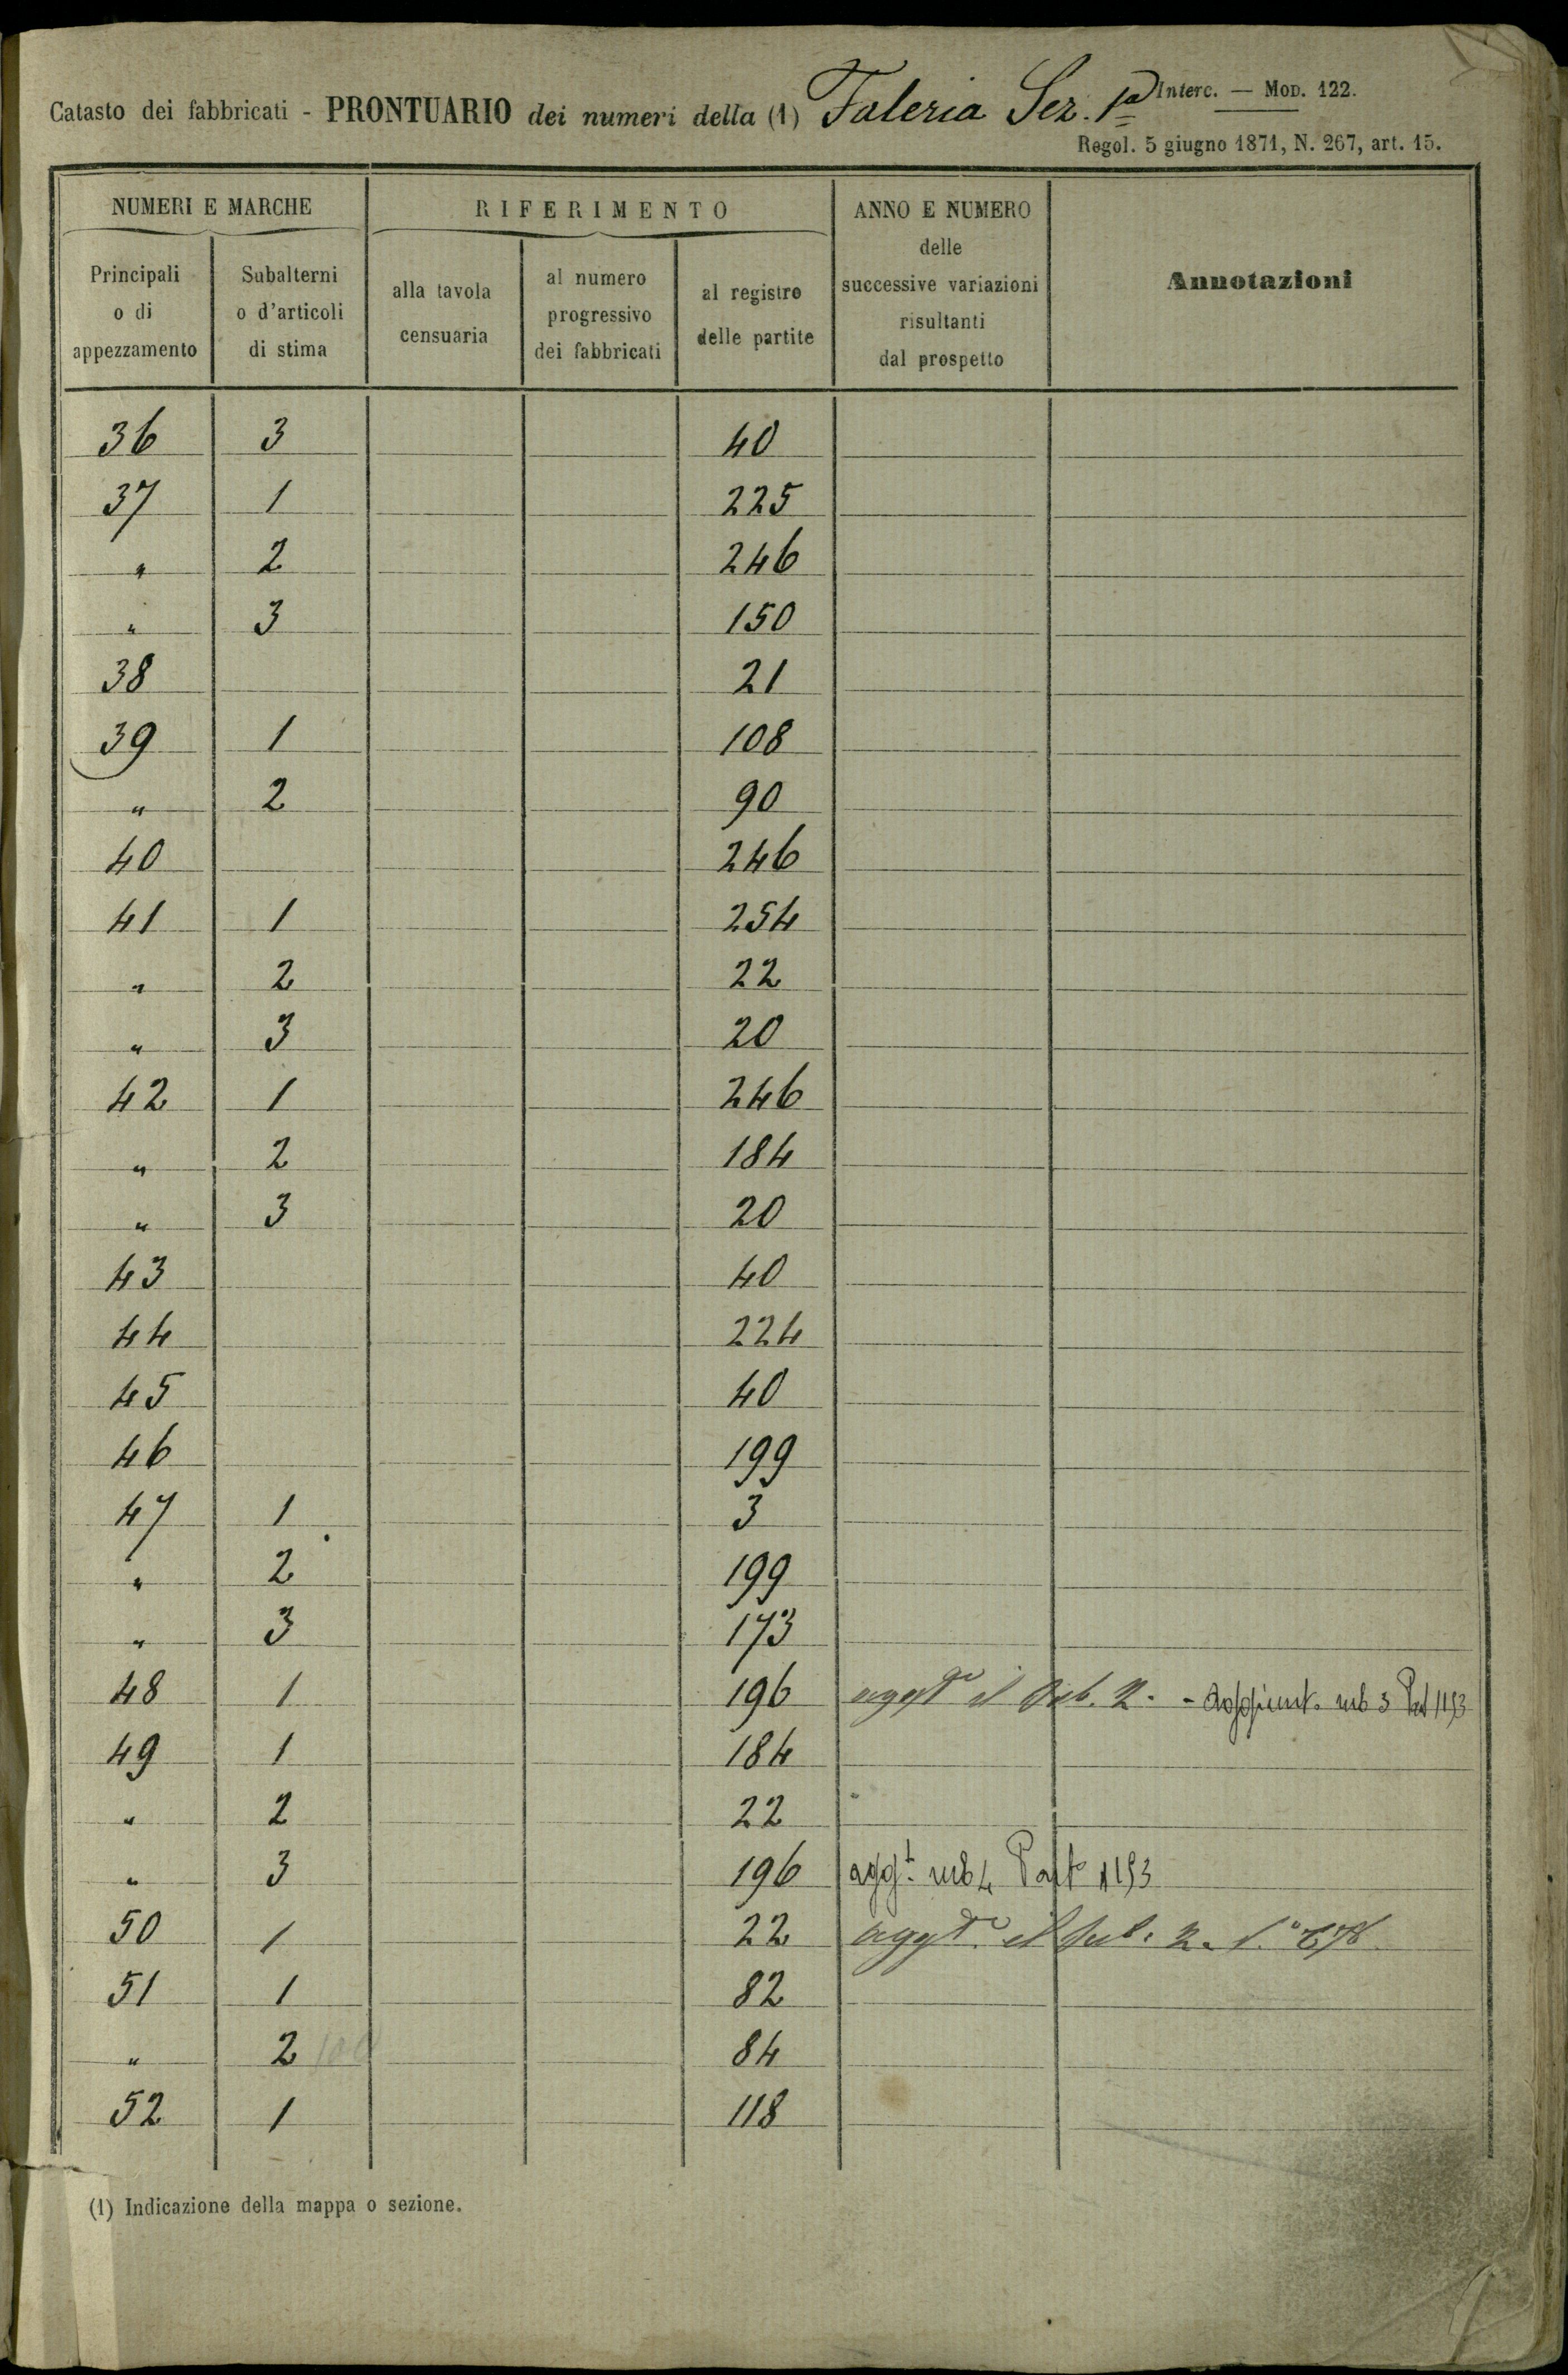 Catasto dei fabbricati - PRONTUARIO dei numeri della (1) Faleria Sez. 1ª Interc. — Mod. 122.
Regol. 5 giugno 1871, N. 267, art. 15.
NUMERI E MARCHE RIFERIMENTO ANNO E NUMERO delle successive variazioni risultanti dal prospetto Annotazioni
Principali o di appezzamento Subalterni o d'articoli di stima alla tavola censuaria al numero progressivo dei fabbricati al registro delle partite
36 3 40
37 1 225
" 2 246
" 3 150
38 21
39 1 108
" 2 90
40 246
41 1 254
" 2 22
" 3 20
42 1 246
" 2 184
" 3 20
43 40
44 224
45 40
46 199
47 1 3
" 2 199
" 3 173
48 1 196 aggto il Sub. 2. - Aggiunt. sub 3 Part 1153
49 1 184
" 2 22
" 3 196 aggt. sub 4 Part 1153
50 1 22 aggto. il sub. 2.
51 1 82
" 2 84
52 1 118
(1) Indicazione della mappa o sezione.